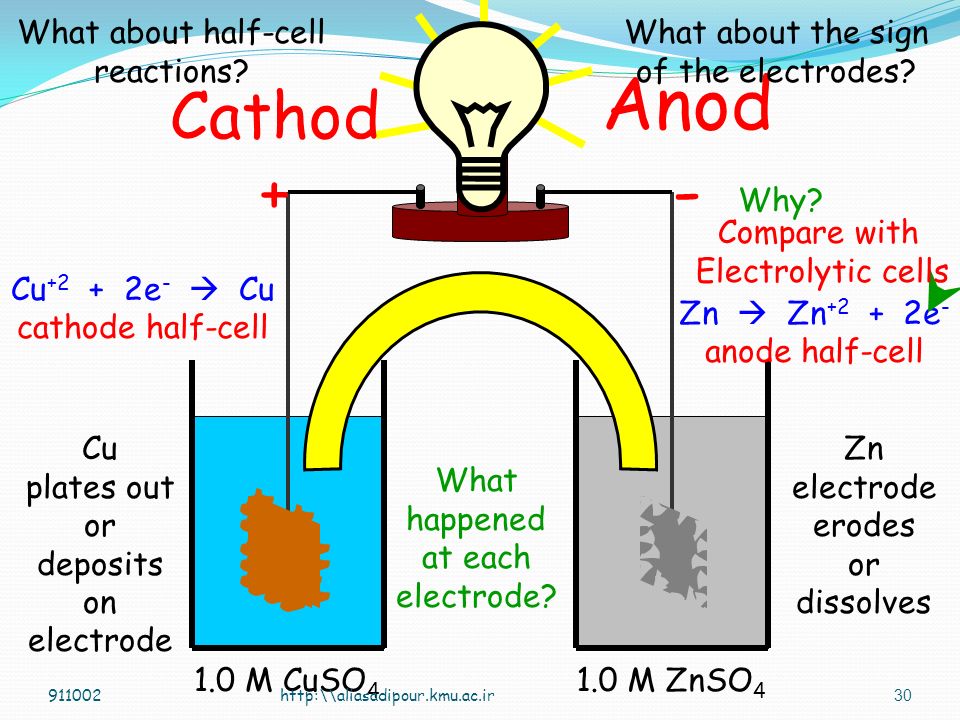 What about half-cell
reactions?
What about the sign
of the electrodes?
Cathod
Anod
+
-
Why?
Compare with
Electrolytic cells
Cu+2 + 2e- → Cu
cathode half-cell
Zn → Zn+2 + 2e-
anode half-cell
Cu
plates out
or
deposits
on
electrode
What
happened
at each
electrode?
Zn
electrode
erodes
or
dissolves
1.0 M CuSO4
1.0 M ZnSO4
911002
http:\\aliasadipour.kmu.ac.ir
30